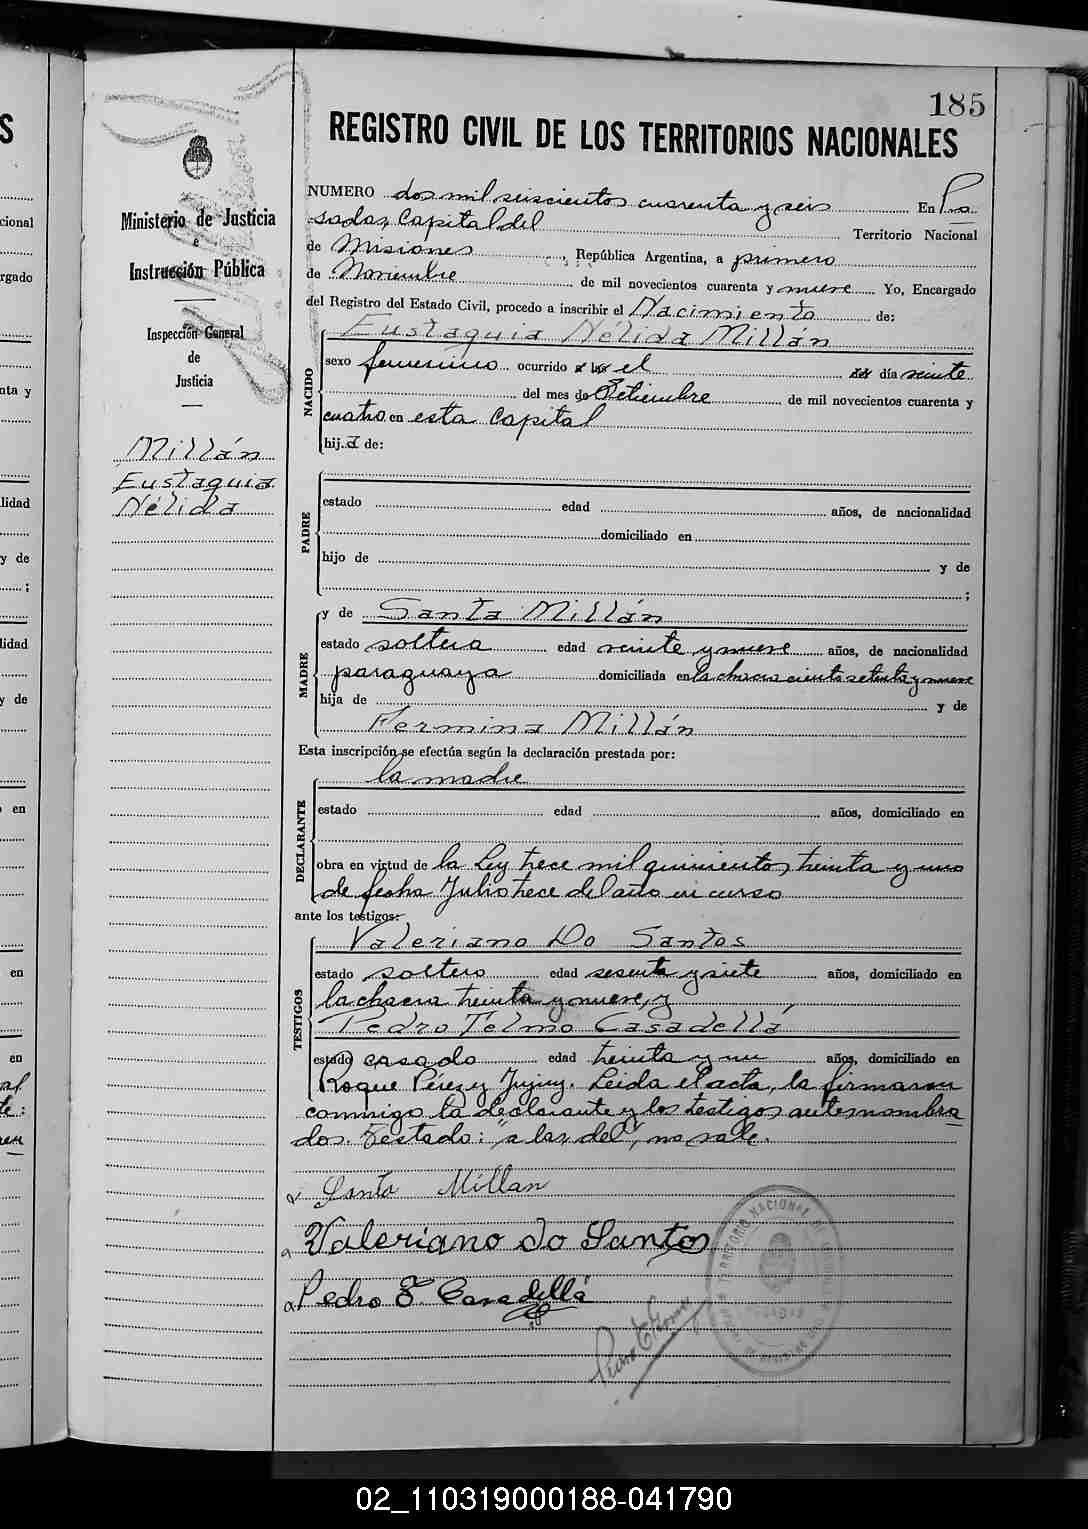 185
REGISTRO CIVIL DE LOS TERRITORIOS NACIONALES
Ministerio de Justicia
e
Instrucción Pública
Inspección General
de
Justicia
Millán
Eustaquia
Nélida
NUMERO dos mil seiscientos cuarenta y seis En Po
sadas, Capital del Territorio Nacional
de Misiones, República Argentina, a primero
de Noviembre de mil novecientos cuarenta y nueve Yo, Encargado
del Registro del Estado Civil, procedo a inscribir el Nacimiento de:
NACIDO
Eustaquia Nélida Millán
sexo femenino ocurrido a las el del día veinte
del mes de Setiembre de mil novecientos cuarenta y
cuatro en esta Capital
hija de:
PADRE
estado edad años, de nacionalidad
domiciliado en
hijo de y de
;
MADRE
y de Santa Millán
estado soltera edad veinte y nueve años, de nacionalidad
paraguaya domiciliada en la chacra ciento setenta y nueve
hija de y de
Fermina Millán
Esta inscripción se efectúa según la declaración prestada por:
DECLARANTE
la madre
estado edad años, domiciliado en
obra en virtud de la Ley trece mil quinientos treinta y uno
de fecha Julio trece del año en curso
ante los testigos:
TESTIGOS
Valeriano Do Santos
estado soltero edad sesenta y siete años, domiciliado en
la chacra treinta y nueve, y
Pedro Telmo Casadellá
estado casado edad treinta y un años, domiciliado en
Roque Pérez y Jujuy. Leida el acta, la firmaron
conmigo la declarante y los testigos antenombra
dos. Testado: "a las, del", no vale.
Santa Millan
Valeriano do Santos
Pedro T. Casadellá
02_110319000188-041790